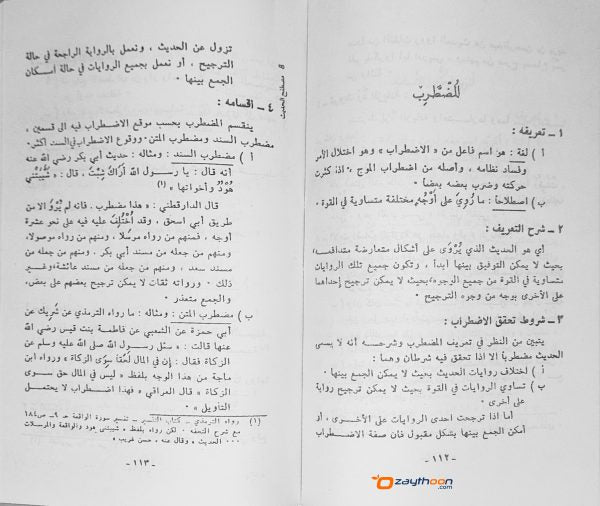 المُضْطَرِبْ
١ ـ تعريفه :
أ ) لغة : هو اسم فاعل من « الاضطراب » وهو اختلال الأمر
وفساد نظامه ، وأصله من اضطراب الموج ، اذا كثرت
حركته وضرب بعضه بعضا ٠
ب ) اصطلاحا : ما رُوِيَ على أَوْجُهٍ مختلفة متساوية في القوة ٠
٢ ـ شرح التعريف :
أي هو الحديث الذي يُرْوَى على أشكال متعارضة متدافعة،
بحيث لا يمكن التوفيق بينها أبدا ، وتكون جميع تلك الروايات
متساوية في القوة من جميع الوجوه، بحيث لا يمكن ترجيح إحداها
على الأخرى بوجه من وجوه الترجيح ٠
٣ ـ شروط تحقق الاضطراب :
يتبين من النظر في تعريف المضطرب وشرحه أنه لا يسمى
الحديث مضطربا الا اذا تحقق فيه شرطان وهما :
أ ) اختلاف روايات الحديث بحيث لا يمكن الجمع بينها ٠
ب ) تساوي الروايات في القوة بحيث لا يمكن ترجيح رواية
على أخرى ٠
أما اذا ترجحت احدى الروايات على الأخرى ، أو
أمكن الجمع بينها بشكل مقبول فان صفة الاضطراب
ـ ١١٢ ـ
٨ مصطلح الحديث
تزول عن الحديث ، ونعمل بالرواية الراجحة في حالة
الترجيح ، أو نعمل بجميع الروايات في حالة امكان
الجمع بينها ٠
٤ ـ اقسامه :
ينقسم المضطرب بحسب موقع الاضطراب فيه الى قسمين ،
مضطرب السند ومضطرب المتن٠ ووقوع الاضطراب في السند اكثر٠
أ ) مضطرب السند : ومثاله : حديث أبي بكر رضي الله عنه
أنه قال : يا رسول الله أَرَاكَ شِبْتَ ، قال : « شَيَّبَتْنِي
هُودٌ وأخواتها » (١)
قال الدارقطني : « هذا مضطرب ٠ فانه لم يُرْوَ الا من
طريق أبي اسحق ، وقد اُخْتُلِفَ عليه فيه على نحو عشرة
أوجه ، فمنهم من رواه مرسلا ، ومنهم من رواه موصولا،
ومنهم من جعله من مسند أبي بكر ٠ ومنهم من جعله من
مسند سعد ، ومنهم من جعله من مسند عائشة وغير
ذلك ٠ ورواته ثقات لا يمكن ترجيح بعضهم على بعض،
والجمع متعذر ٠
ب ) مضطرب المتن : ومثاله : ما رواه الترمذي عن شَرِيك عن
أبي حمزة عن الشعبي عن فاطمة بنت قيس رضي الله
عنها قالت : « سئل رسول الله صلى الله عليه وسلم عن
الزكاة فقال : إن في المال لَحَقاً سِوى الزكاة » ورواه ابن
ماجة من هذا الوجه بلفظ « ليس في المال حق سوى
الزكاة » قال العراقي « فهذا اضطراب لا يحتمل
التأويل » ٠
(١) رواه الترمذي ـ كتاب التفسير ـ تفسير سورة الواقعة جـ ٩ـ ص١٨٤
مع شرح التحفة ٠ لكن رواه بلفظ « شيبتني هود والواقعة والمرسلات
٠٠٠ الحديث » وقال عنه ، حسن غريب »
ـ ١١٣ ـ
zaythoon
.com